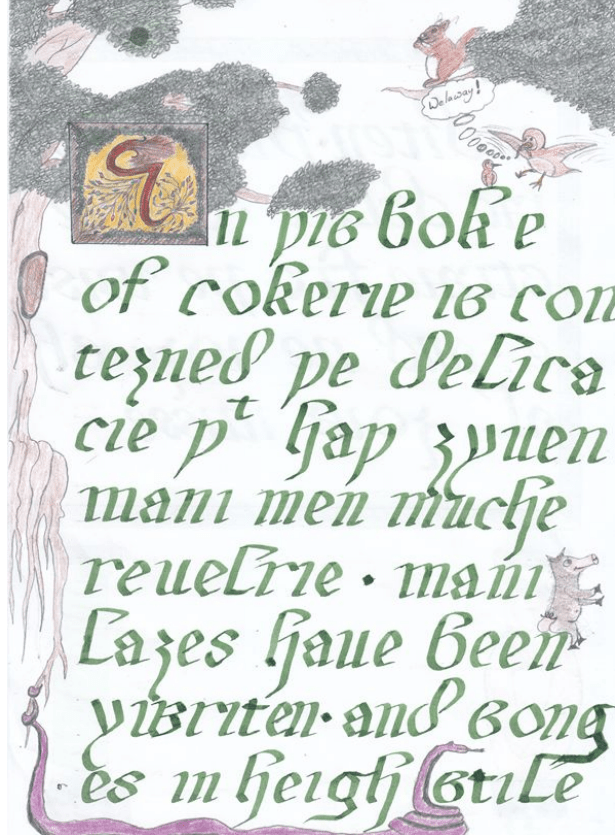 Welaway!
In þis boke
of cokerie is con
teȝned þe delica
cie þᵗ haþ ȝyuen
mani men muche
reuelrie · mani
laȝes haue been
ywriten · and song
es in heigh stile